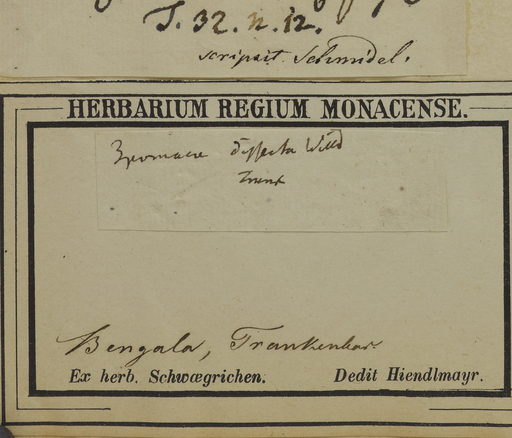 T. 32. n. 12.
scripsit Schmidel.
HERBARIUM REGIUM MONACENSE.
dissecta Willd
Bengala, Trankenbar
Ex herb. Schwægrichen. Dedit Hiendlmayr.